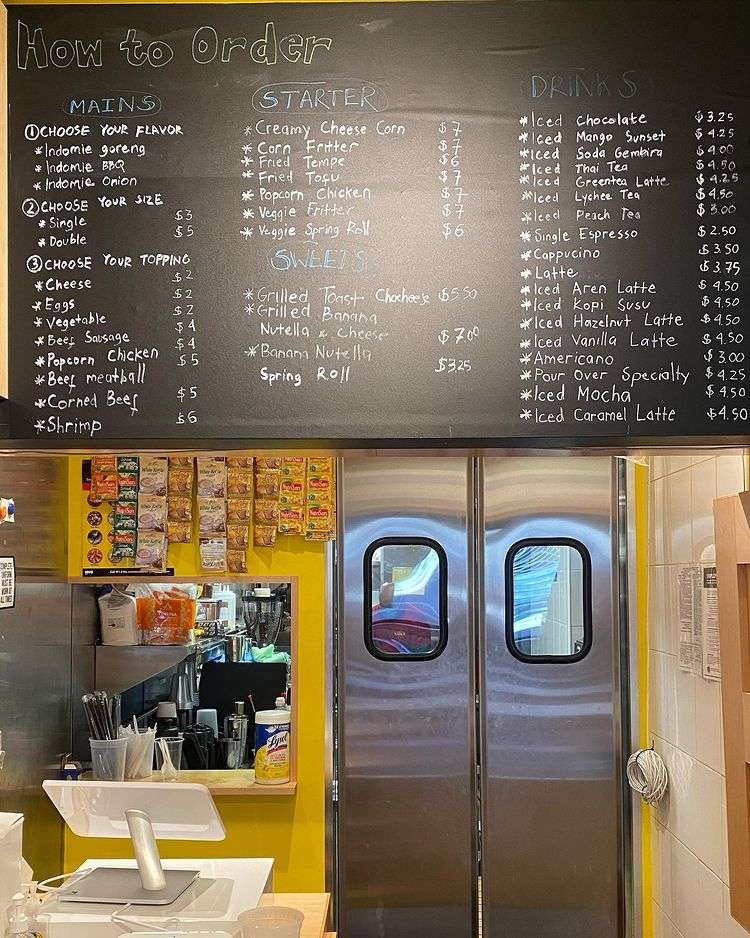 How to Order
MAINS
① CHOOSE YOUR FLAVOR
* Indomie goreng
* Indomie BBQ
* Indomie Onion
② CHOOSE YOUR SIZE
* Single $3
* Double $5
③ CHOOSE YOUR TOPPING
* Cheese $2
* Eggs $2
* Vegetable $2
* Beef Sausage $4
* Popcorn Chicken $4
* Beef meatball $5
* Corned Beef $5
* Shrimp $6
STARTER
* Creamy Cheese Corn $7
* Corn Fritter $7
* Fried Tempe $6
* Fried Tofu $7
* Popcorn Chicken $7
* Veggie Fritter $7
* Veggie Spring Roll $6
SWEETS
* Grilled Toast Chocheese $5.50
* Grilled Banana
Nutella & Cheese $7.00
* Banana Nutella
Spring Roll $3.25
DRINKS
* Iced Chocolate $3.25
* Iced Mango Sunset $4.25
* Iced Soda Gembira $4.00
* Iced Thai Tea $4.50
* Iced Greentea Latte $4.25
* Iced Lychee Tea $4.50
* Iced Peach Tea $3.00
* Single Espresso $2.50
* Cappucino $3.50
* Latte $3.75
* Iced Aren Latte $4.50
* Iced Kopi Susu $4.50
* Iced Hazelnut Latte $4.50
* Iced Vanilla Latte $4.50
* Americano $3.00
* Pour Over Specialty $4.25
* Iced Mocha $4.50
* Iced Caramel Latte $4.50
White Koffie
NutriSari
Lysol